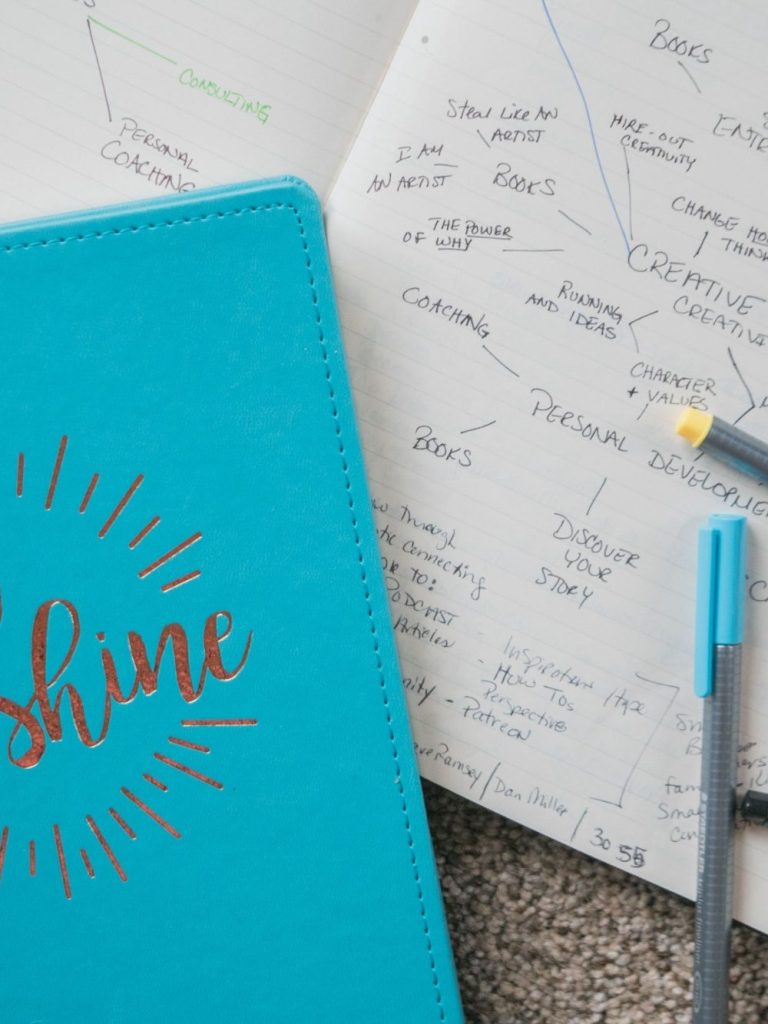 CONSULTING
PERSONAL
COACHING
BOOKS
Steal Like AN
ARTIST
HIRE-OUT
CREATIVITY
I AM
AN ARTIST
BOOKS
CHANGE
THINK
THE POWER
OF WHY
CREATIVE
RUNNING
AND IDEAS
COACHING
CHARACTER
+ VALUES
PERSONAL DEVELOPMENT
BOOKS
DISCOVER
YOUR
STORY
through
connecting
to:
PODCAST
Articles
- Inspiration / Hype
- How Tos
Perspective
- Patreon
Ramsey / Dan Miller / 30 55
shine